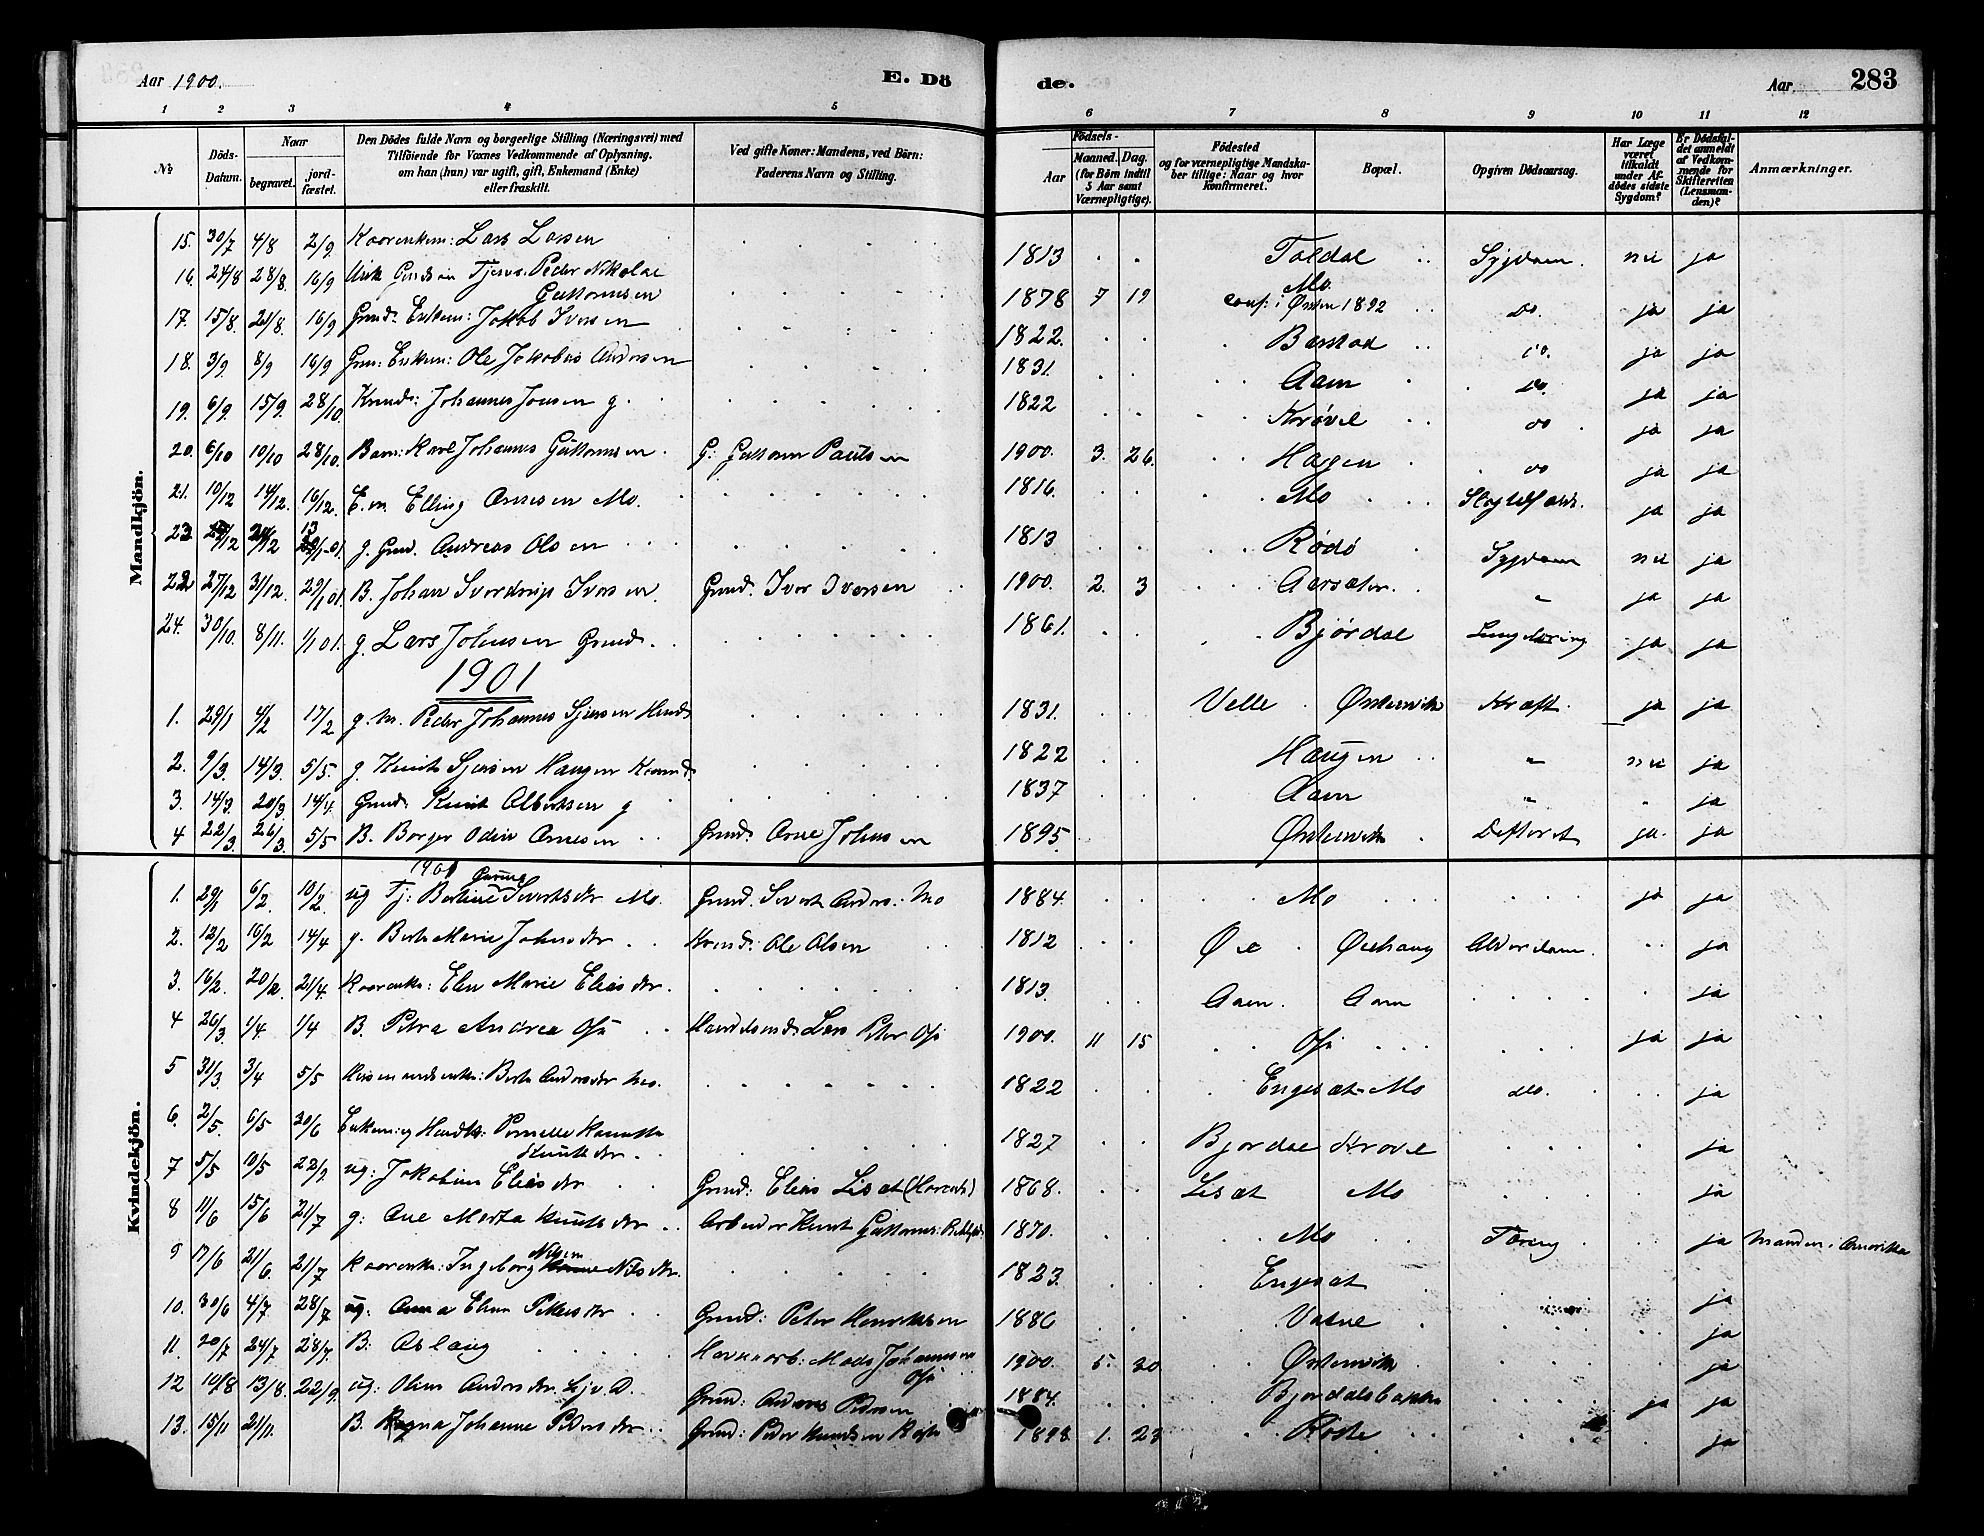 Aar 1900. E. Dö
de. Aar 283
1 2 3 4 5 6 7 8 9 10 11 12
No Döds-Datum. Naar begravet. jord-fæstet. Den Dödes fulde Navn og borgerlige Stilling (Næringsvei) med Tilföiende for Voxnes Vedkommende af Oplysning, om han (hun) var ugift, gift, Enkemand (Enke) eller fraskilt. Ved gifte Koner: Mandens, ved Börn: Faderens Navn og Stilling. Födsels- Aar Maaned. Dag. (for Börn indtil 5 Aar samt Værnepligtige). Födested og for værnepligtige Mandskaber tillige: Naar og hvor konfirmeret. Bopæl. Opgiven Dödsaarsag. Har Læge været tilkaldt under Afdödes sidste Sygdom? Er Dödsfaldet anmeldt af Vedkommende for Skifteretten (Lensmanden)? Anmærkninger.
Mandkjön.
15. 30/7 4/8 2/9 Kaarenkem: Lars Larsen 1813 Foldal Sygdom nei ja
16. 24/8 28/8. 16/9 Tjener Peder Nikolai Guttormsen 1878 7 19 Mo conf: i Ørsten 1892 do. ja ja
17. 15/8. 21/8. 16/9 Grmd: Enkem: Jakob Iversen 1822. Barstad do. ja ja
18. 3/9 8/9 16/9 Enkem: Ole Jakobus Andersen 1831. Aam do. ja ja
19. 6/9 15/9. 28/10. Johannes Jonsen g. 1822 Krøvel do ja ja
20. 6/10 10/10 28/10. Barn: Karl Johannes Guttormsen. G: Guttorm Paulsen 1900. 3. 26. Hagen do ja ja
21. 10/12 14/12. 16/12. E.m. Elling Arnesen Mo. 1816. Mo ja ja
23. 13/1-01. g. Grmd. Andreas Olsen 1813 Rödö Sygdom nei ja
22 27/12 31/12. 29/1 01. B. Johan Sverdrup Iversen. Grmd. Iver Iversen 1900. 2. 3 Aarsæter. " ja ja
24. 30/10. 8/11. 1/1 01. g. Lars Johnsen Grmd. 1861. Bjørdal ja ja
1901
1. 29/1 4/2 17/2 g. m. Peder Johannes 1831. Velle Ørstenvik Kræft. ja ja
2. 9/3. 14/3. 5/5. g. Knut Haugen 1822 Haugen " nei ja
3. 14/3. 20/3. 14/4 Grmd: Knut Albertsen g 1837 Aam " " ja
4 22/3. 26/3. 5/5 B. Borger Odin Arnesen Grmd: Arne Johnsen 1895. Ørstenvik Defterit ja. ja
Kvindekjön.
1901
1. 29/1 6/2. 10/2. ug Tj: Bertine Sivertsdtr Mo. Grmd. Sivert Anders. Mo 1884. Mo ja ja
2. 12/2 16/2 14/4 g. Berte Marie Johnsdtr Ole Olsen 1812 Øie Øiehaug Alderdom. ja
3. 16/2. 20/2. 21/4. Kaarenke: Elen Marie Eliasdtr. 1813. Aam. Aam ja
4 26/3 1/4. 1/4 B. Petra Andrea Osu Handelsmd: Lars Peter Osu 1900. 11 15 Osu ja ja
5 31/3 3/4 5/5 Berte Andersdtr Mo. 1822 Engeset Mo do. ja
6. 2/5. 6/5 20/6 Pernille Knutsdtr 1827 Bjordal Krovel ja
7 5/5 10/5 22/9 ug: Jakobine Eliasdtr Grmd: Elias Liset 1868. Liset Mo ja
8 11/6 15/6 21/7 g: Ane Marta Knutsdtr Arbeider Knut Guttorms: 1870. Mo Tæring ja Manden i Amerika
9 17/6 21/6. 21/7 Kaarenke: Ingeborg Nilsen Nilsdtr. 1823. Engeset ja
10. 30/6 4/7 28/7 ug. Anna Elina Pettersdtr Grmd: Peter Henriksen 1886 Vatne ja
11. 20/7 24/7 28/7. B: Aslaug Havnearb: Mads Johannesen Osu 1900. 5. 20 Ørstenvik ja
12 10/8 13/8. 22/9. ug: Oline Andersdtr. Grmd: Andreas Pedersen 1884. Bjordalsbakke ja ja
13. 15/11 21/11. B. Ragna Johanne Pedersdtr Grmd: Peder Knudsen Røste 1898 1. 23 Röste ja